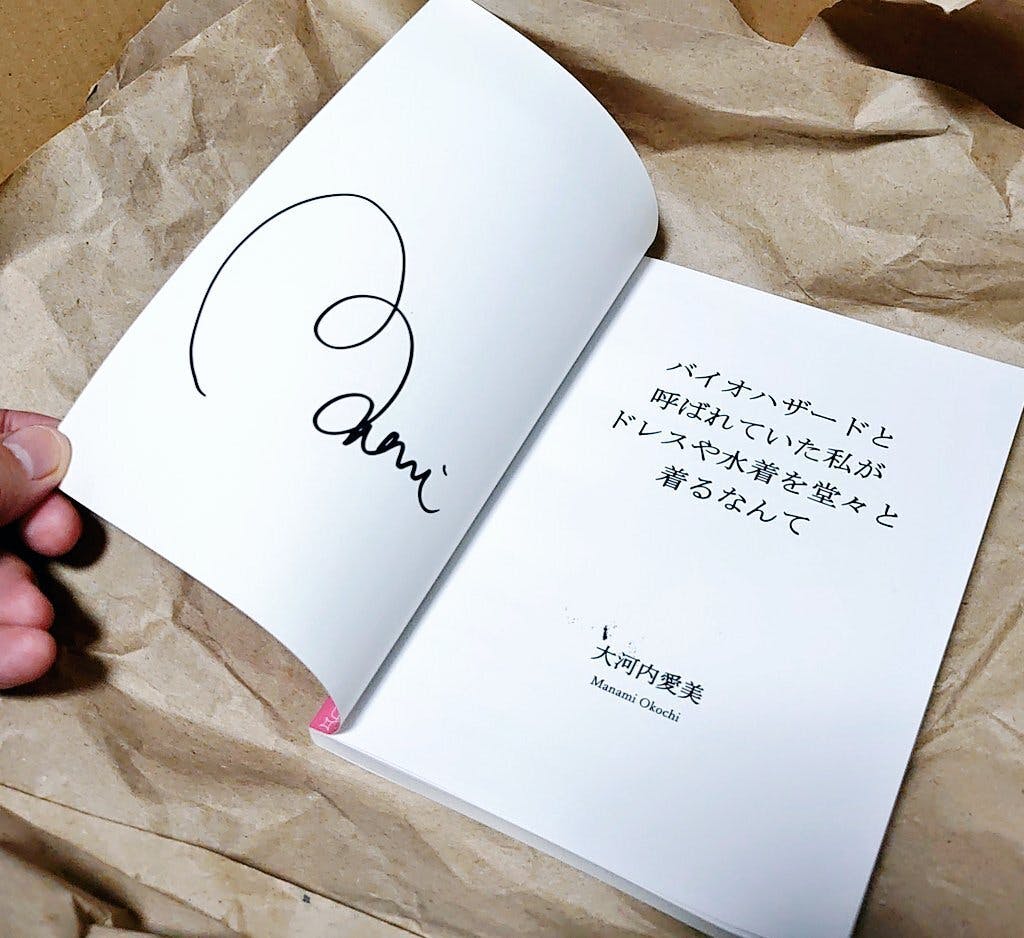 バイオハザードと
呼ばれていた私が
ドレスや水着を堂々と
着るなんて
大河内愛美
Manami Okochi